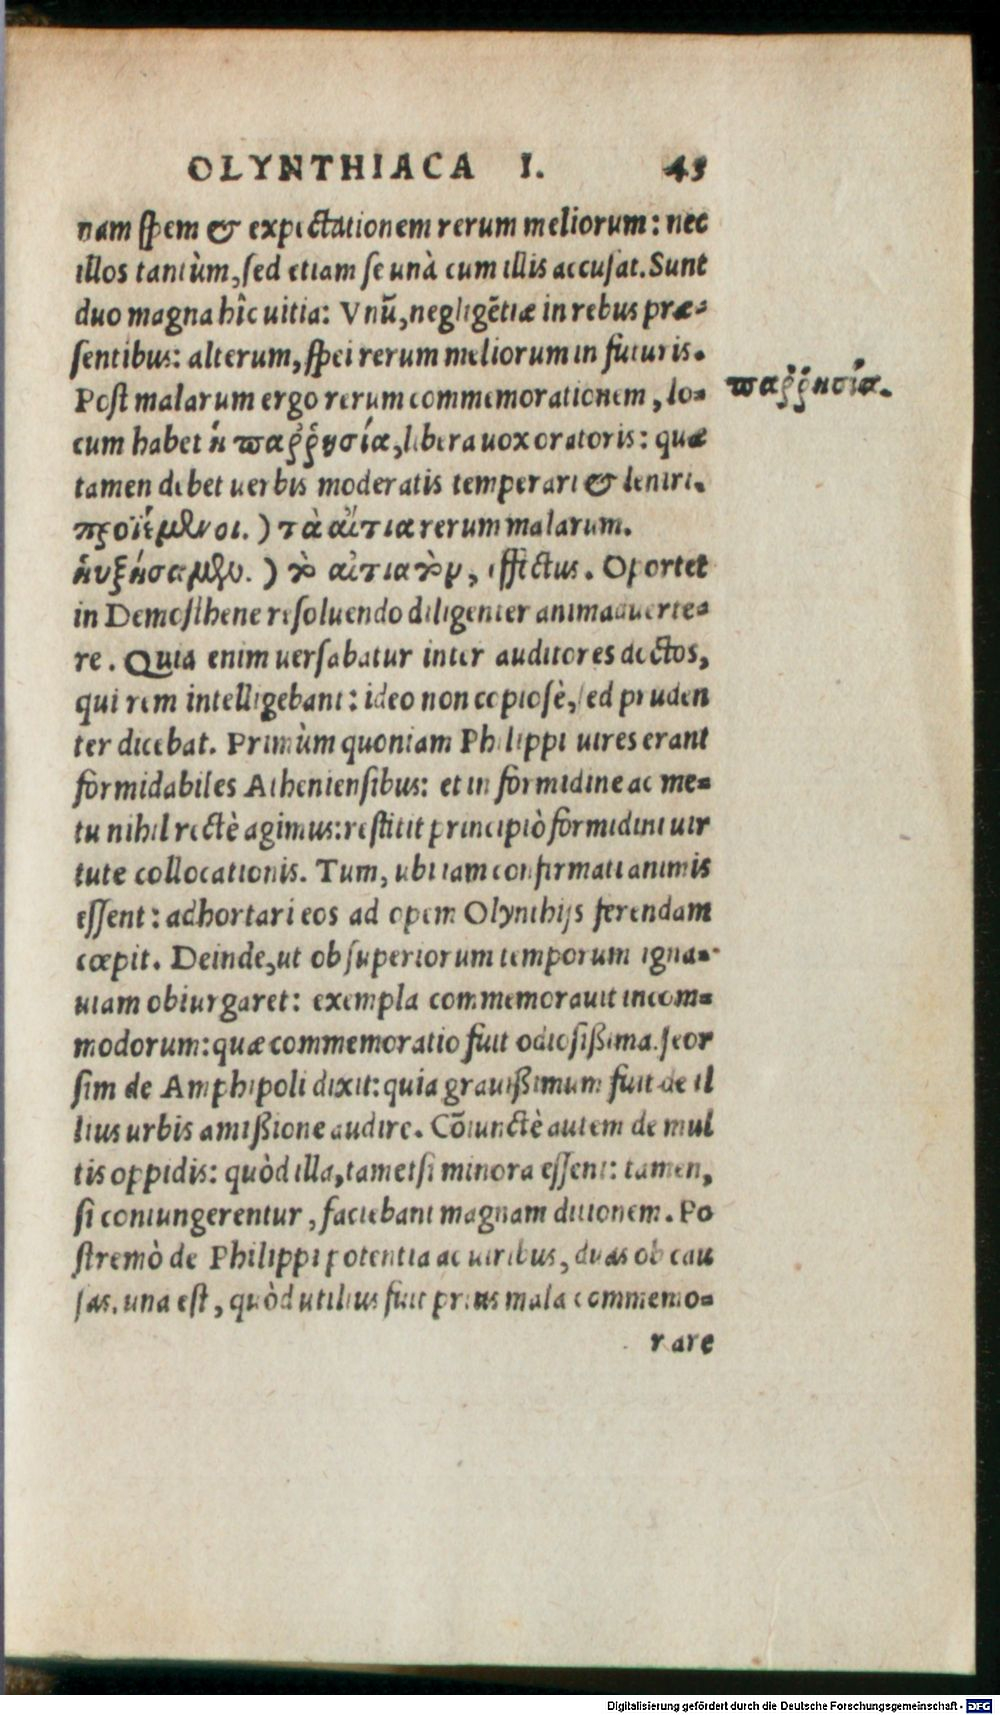 OLYNTHIACA I. 43
nam spem & expectationem rerum meliorum: nec
illos tantùm, sed etiam se unà cum illis accusat. Sunt
duo magna hîc uitia: Vnũ, negligẽtiæ in rebus præ-
sentibus: alterum, spei rerum meliorum in futuris.
Post malarum ergo rerum commemorationem, lo-
παῤῥησία.
cum habet ἡ παῤῥησία, libera uox oratoris: quæ
tamen debet uerbis moderatis temperari & leniri.
προϊέμενοι.) τὰ αἴτια rerum malarum.
ηὐξήσαμεν.) τὸ αἰτιατὸν, effectus. Oportet
in Demosthene resoluendo diligenter animaduerte-
re. Quia enim uersabatur inter auditores doctos,
qui rem intelligebant: ideo non copiosè, sed pruden
ter dicebat. Primùm quoniam Philippi uires erant
formidabiles Atheniensibus: et in formidine ac me-
tu nihil rectè agimus: restitit principiò formidini uir
tute collocationis. Tum, ubi iam confirmati animis
essent: adhortari eos ad opem Olynthijs ferendam
cœpit. Deinde, ut ob superiorum temporum igna-
uiam obiurgaret: exempla commemorauit incom-
modorum: quæ commemoratio fuit odiosißima. seor
sim de Amphipoli dixit: quia grauißimum fuit de il
lius urbis amißione audire. Cõiunctè autem de mul
tis oppidis: quòd illa, tametsi minora essent: tamen,
si coniungerentur, faciebant magnam ditionem. Po
stremò de Philippi potentia ac uiribus, duas ob cau
sas. una est, quòd utilius fuit prius mala commemo-
rare
Digitalisierung gefördert durch die Deutsche Forschungsgemeinschaft - DFG